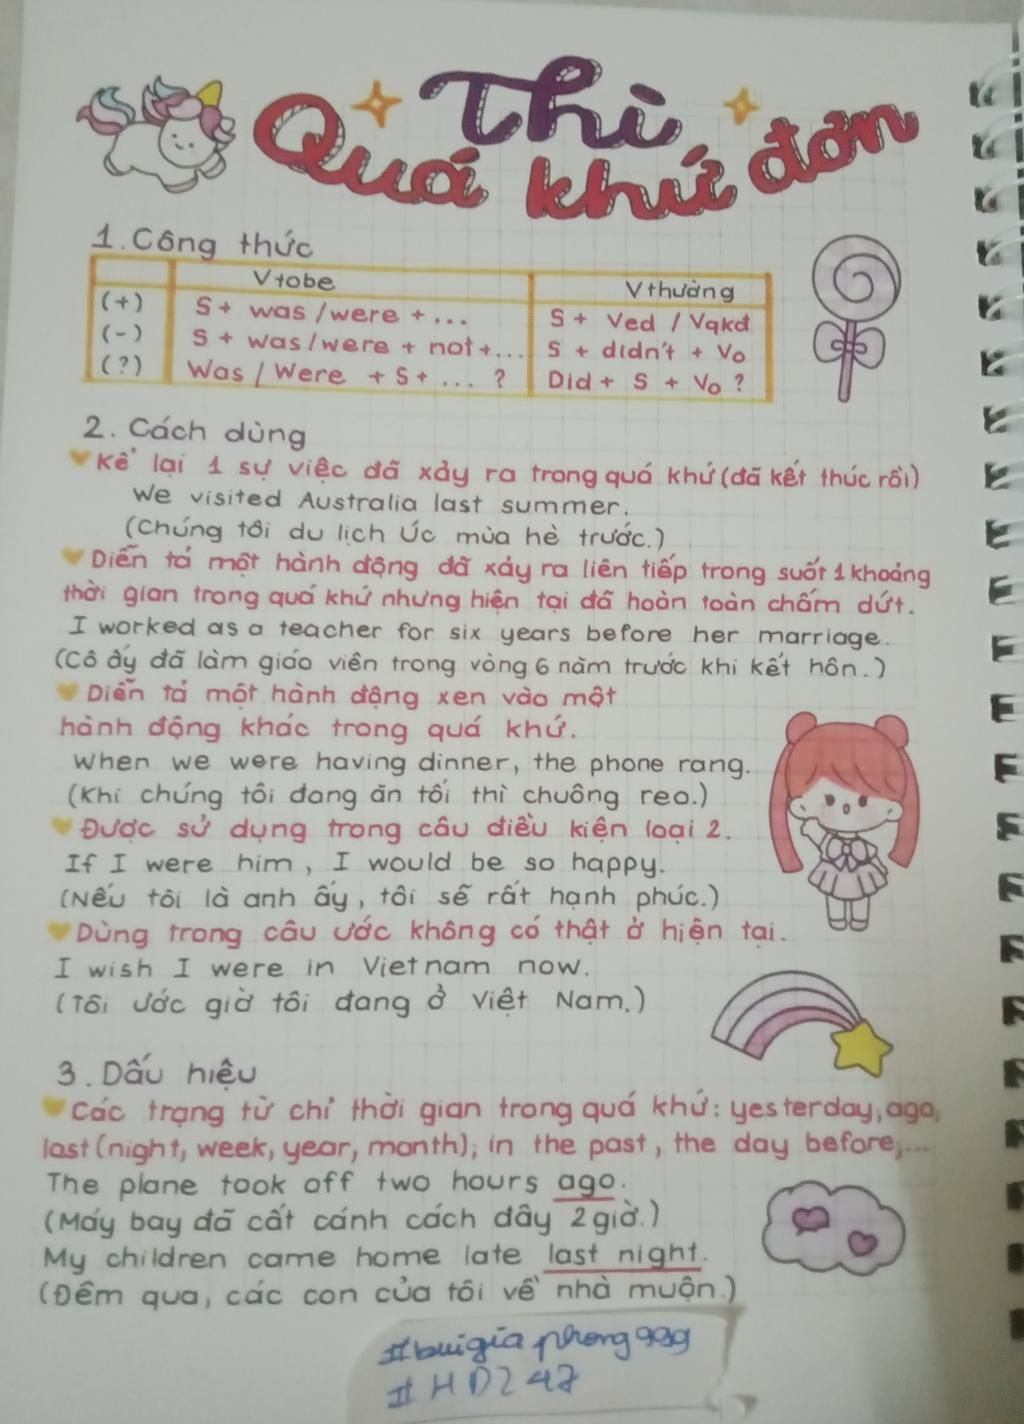 Thì
Quá khứ đơn
1. Công thức
Vtobe Vthường
(+) S + was/were + ... S + Ved / Vqkđ
(-) S + was/were + not +... S + didn't + Vo
(?) Was / Were + S + ... ? Did + S + Vo ?
2. Cách dùng
Kể lại 1 sự việc đã xảy ra trong quá khứ (đã kết thúc rồi)
We visited Australia last summer.
(Chúng tôi du lịch Úc mùa hè trước.)
Diễn tả một hành động đã xảy ra liên tiếp trong suốt 1 khoảng
thời gian trong quá khứ nhưng hiện tại đã hoàn toàn chấm dứt.
I worked as a teacher for six years before her marriage.
(Cô ấy đã làm giáo viên trong vòng 6 năm trước khi kết hôn.)
Diễn tả một hành động xen vào một
hành động khác trong quá khứ.
When we were having dinner, the phone rang.
(Khi chúng tôi đang ăn tối thì chuông reo.)
Được sử dụng trong câu điều kiện loại 2.
If I were him, I would be so happy.
(Nếu tôi là anh ấy, tôi sẽ rất hạnh phúc.)
Dùng trong câu ước không có thật ở hiện tại.
I wish I were in Vietnam now.
(Tôi ước giờ tôi đang ở Việt Nam.)
3. Dấu hiệu
Các trạng từ chỉ thời gian trong quá khứ: yesterday, ago,
last (night, week, year, month); in the past, the day before,...
The plane took off two hours ago.
(Máy bay đã cất cánh cách đây 2 giờ.)
My children came home late last night.
(Đêm qua, các con của tôi về nhà muộn.)
#buigiaphong999
#HD247